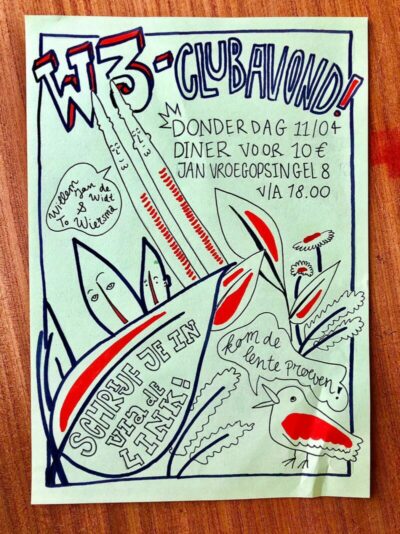 W3-CLUBAVOND!
DONDERDAG 11/04
DINER VOOR 10€
JAN VROEGOPSINGEL 8
V/A 18.00
Willem
Jan de
Widt
&
To Wiersma
SCHRIJF JE IN
VIA de
LINK!
kom de
lente proeven!